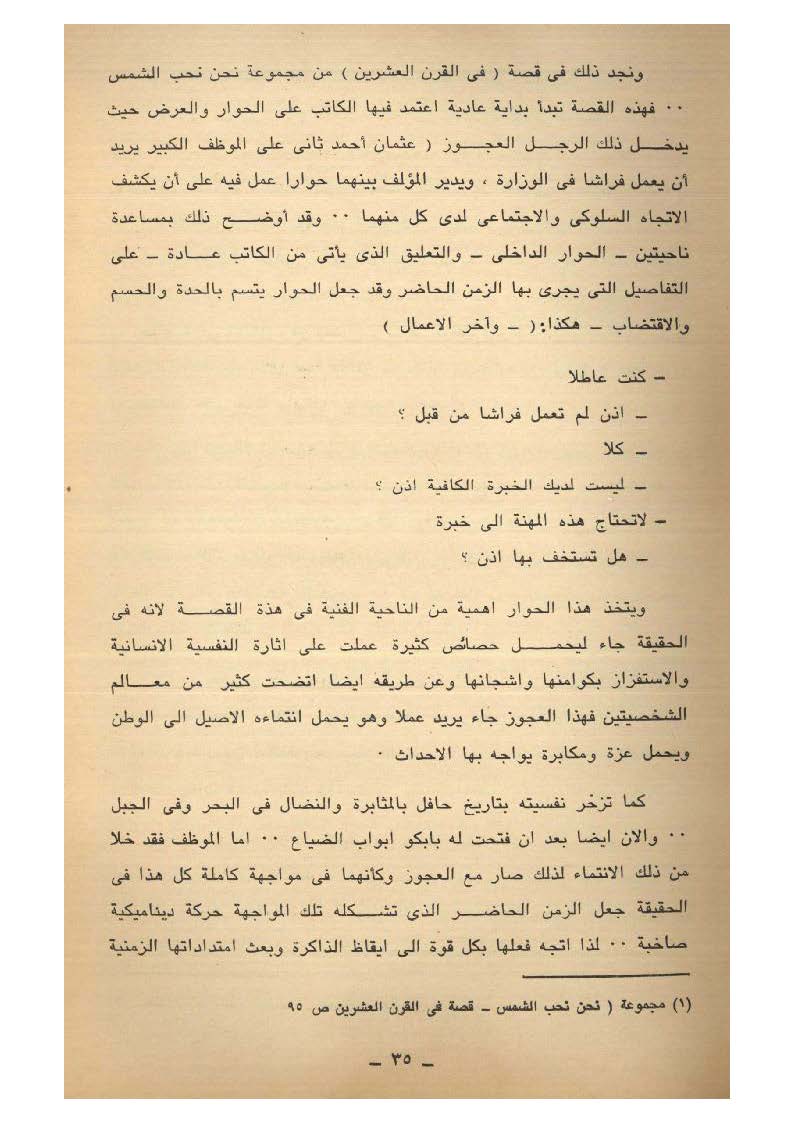 ونجد ذلك فى قصة ( فى القرن العشرين ) من مجموعة نحن نحب الشمس
٠٠ فهذه القصة تبدأ بداية عادية اعتمد فيها الكاتب على الحوار والعرض حيث
يدخـــل ذلك الرجـــل العجـــوز ( عثمان أحمد ثانى على الموظف الكبير يريد
أن يعمل فراشا فى الوزارة ، ويدير المؤلف بينهما حوارا عمل فيه على أن يكشف
الاتجاه السلوكى والاجتماعى لدى كل منهما ٠٠ وقد أوضـــح ذلك بمساعدة
ناحيتين ــ الحوار الداخلى ــ والتعليق الذى يأتى من الكاتب عـــادة ــ على
التفاصيل التى يجرى بها الزمن الحاضر وقد جعل الحوار يتسم بالحدة والحسم
والاقتضاب ــ هكذا:( ــ وآخر الاعمال )
ــ كنت عاطلا
ــ اذن لم تعمل فراشا من قبل ؟
ــ كلا
ــ ليست لديك الخبرة الكافية اذن ؟
ــ لاتحتاج هذه المهنة الى خبرة
ــ هل تستخف بها اذن ؟
ويتخذ هذا الحوار اهمية من الناحية الفنية فى هذة القصـــة لانه فى
الحقيقة جاء ليحمـــل حصائص كثيرة عملت على اثارة النفسية الانسانية
والاستفزاز بكوامنها واشجانها وعن طريقه ايضا اتضحت كثير من معـــالم
الشخصيتين فهذا العجوز جاء يريد عملا وهو يحمل انتماءه الاصيل الى الوطن
ويحمل عزة ومكابرة يواجه بها الاحداث ٠
كما تزخر نفسيته بتاريخ حافل بالمثابرة والنضال فى البحر وفى الجبل
٠٠ والان ايضا بعد ان فتحت له بابكو ابواب الضياع ٠٠ اما الموظف فقد خلا
من ذلك الانتماء لذلك صار مع العجوز وكأنهما فى مواجهة كاملة كل هذا فى
الحقيقة جعل الزمن الحاضـــر الذى تشـــكله تلك المواجهة حركة ديناميكية
صاخبة ٠٠ لذا اتجه فعلها بكل قوة الى ايقاظ الذاكرة وبعث امتداداتها الزمنية
(١) مجموعة ( نحن نحب الشمس ــ قصة فى القرن العشرين ص ٩٥
ــ ٣٥ ــ